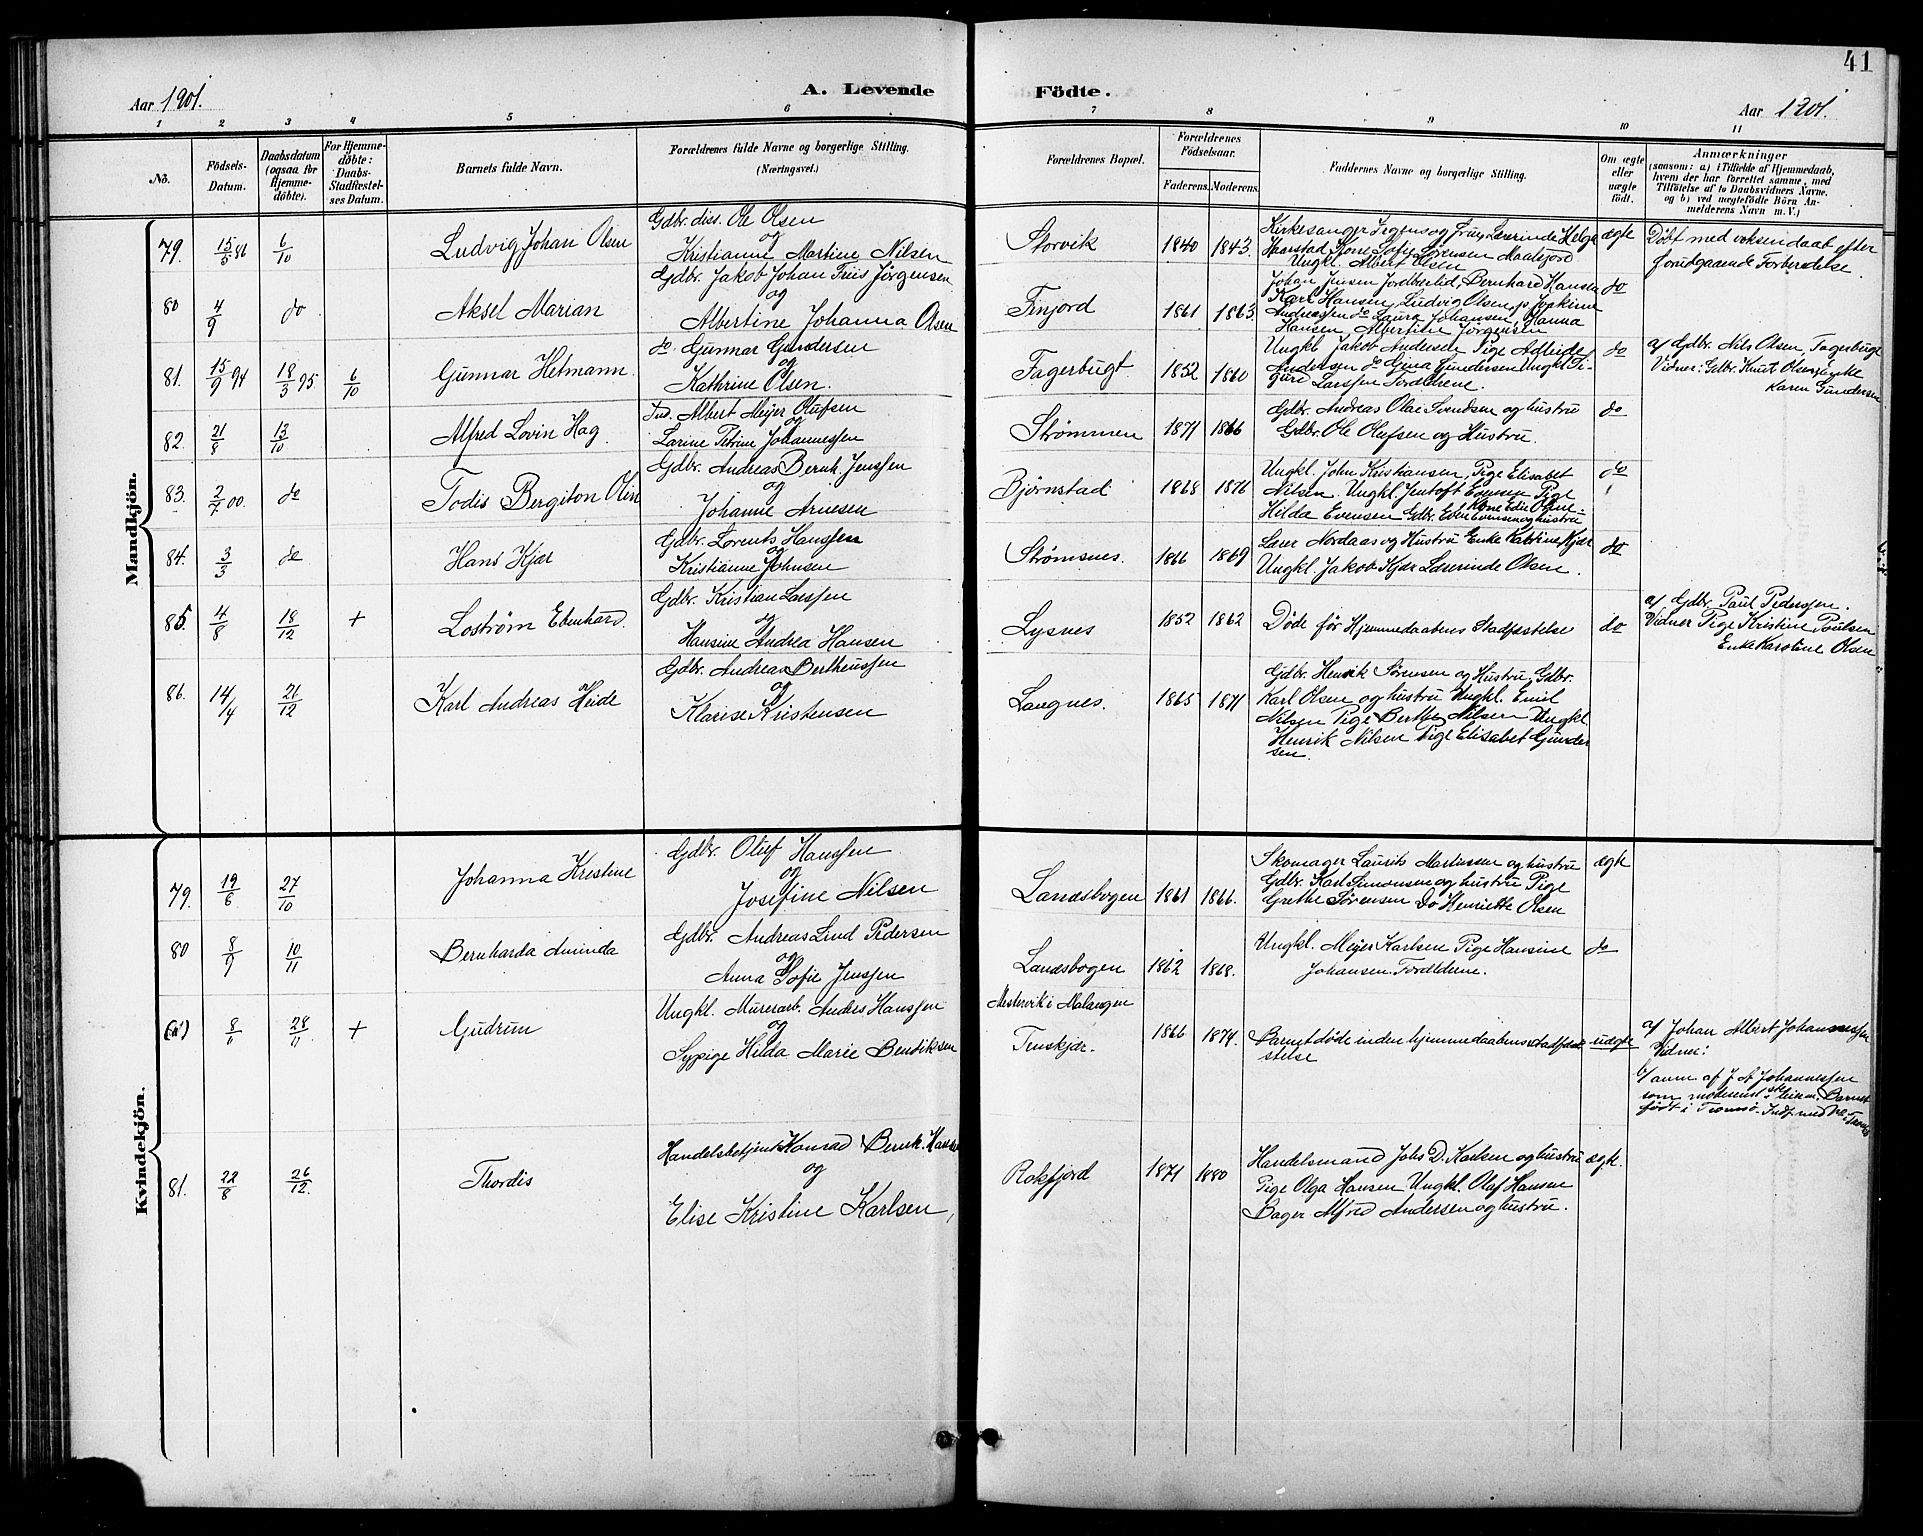 41
Aar 1901.
A. Levende Födte.
Aar 1901.
1 2 3 4 5 6 7 8 9 10 11
No.
Födsels-Datum.
Daabsdatum (ogsaa for Hjemme-döbte).
For Hjemme-döbte: Daabs-Stadfæstel-ses Datum.
Barnets fulde Navn.
Forældrenes fulde Navne og borgerlige Stilling.
(Næringsvei.)
Forældrenes Bopæl.
Forældrenes Födselsaar.
Faderens. Moderens.
Faddernes Navne og borgerlige Stilling.
Om ægte eller uægte födt.
Anmærkninger
(saasom: a) i Tilfælde af Hjemmedaab,
hvem der har forrettet samme, med
Tilföielse af to Daabsvidners Navne.
og b) ved uægtefödte Börn An-
melderens Navn m. V.)
Mandkjön.
79. 15/5 86 6/10 Ludvig Johan Olsen
Gdbr. diss. Ole Olsen
og
Kristianne Martine Nilsen
Storvik 1840 1843.
Kirkesanger Fegens og Frue, Lærerinde Helga
Haarstad, Kone Sofie Sørensen Maalefjord
Ungkl. Albert Olsen
ægte
Døbt med voksendaab efter
forudgaaende Forberedelse.
80 4/9 do Aksel Marian
Gdbr. Jakob Johan Friis Jørgensen
og
Albertine Johanna Olsen
Finjord 1861 1863
Johan Jensen Jordbærlid, Bernhard Hansen
Karl Hansen, Ludvig Olsen, Joakime
Andreassen do Laura Johansen, Hanna
Hansen, Albertine Jørgensen
do
81. 15/9 94 18/3 95 6/10 Gunnar Hetmann
do. Gunnar Gundersen
og
Kathrine Olsen.
Fagerbugt 1852 1860
Ungkl. Jakob Andersen Pige
Andersen do Gina Gundersen Ungkl.
Larssen Forældrene.
do
af Gdbr. Nils Olsen, Fagerbugt
Vidner: Gdbr. Knut Olsen, enke
Karen Gundersen
82. 21/8 13/10 Alfred Lovin Hag
Ind. Albert Meijer Olufsen
og
Larine Petrine Johannessen
Strømmen 1871 1866
Gdbr. Andreas Olai Svendsen og hustru
Gdbr. Ole Olufsen og Hustru.
do
83. 2/7 00. do Todis Bergiton Olin
Gdbr. Andreas Bernh. Jenssen
og
Johanne Arnesen
Bjørnstad 1868 1876
Ungkl. John Kristiansen, Pige Elisabet
Nilsen. Ungkl. Jentoft Evensen Pige
Hilda Evensen Gdbr. Even Evensen og hustru
do
84. 3/3 do Hans Kjær
Gdbr. Lorents Hanssen
og
Kristianne Johnsen
Strømsnes. 1866 1869
Lærer Nordaas og Hustru Enke Kjær
Ungkl. Jakob Kjær Lærerinde Olsen.
do
85. 4/8 18/12 + Loström Ebenhard.
Gdbr. Kristian Larssen
og
Hansine Andrea Hansen
Lysnes 1852 1862
Døde før Hjemmedaabens Stadfæstelse
do
af Gdbr. Paul Pederssen.
Vidner Pige Kristine Poulsen
Enke Karoline Olsen
86. 14/4 26/12 Karl Andreas Heide
Gdbr. Andreas Bertheussen
og
Klarise Kristensen
Langnes. 1865 1871
Gdbr. Henrik Sørensen og Hustru, Gdbr.
Karl Olsen og hustru Ungkl. Emil
Nilsen Pige Berthe Nilsen Ungkl.
Henrik Nilsen Pige Elisabet Gunder
sen.
Kvindekjön.
79. 19/6 27/10 Johanna Kristine
Gdbr. Oluf Hanssen
og
Josefine Nilsen
Landsbogen 1861 1866.
Skomager Laurits Martinssen og hustru
Gdbr. Karl Simonsen og hustru Pige
Grethe Sørensen Do Henriette Olsen
ægte
80 8/9 10/11 Bernharda Aminda
Gdbr. Andreas Lind Pedersen
og
Anna Sofie Jenssen
Landsbogen 1862 1868.
Ungkl. Meijer Karlsen Pige Hansine
Johansen Forældrene.
do
8/11 28/11 + Gudrun
Ungkl. Murerarb. Andres Hanssen
og
Sypige Hilda Marie Bendiksen
Mestervik i Malangen
Tenskjær. 1866 1879.
Barnet døde inden hjemmedaabens stadfæ
stelse
uægte
af Johan Albert Johannessen
Vidner:
b/ anm af J A Johannessen
født i Tromsø.
81. 22/8 26/12. Thordis
Handelsbetjent Konrad Bernh. Hansen
og
Elise Kristine Karlsen,
Roksfjord 1871 1880
Handelsmand Johs D. Karlsen og hustru
Pige Olga Hansen Ungkl. Olaf Hansen
Bager Alfred Andersen og hustru.
ægte.